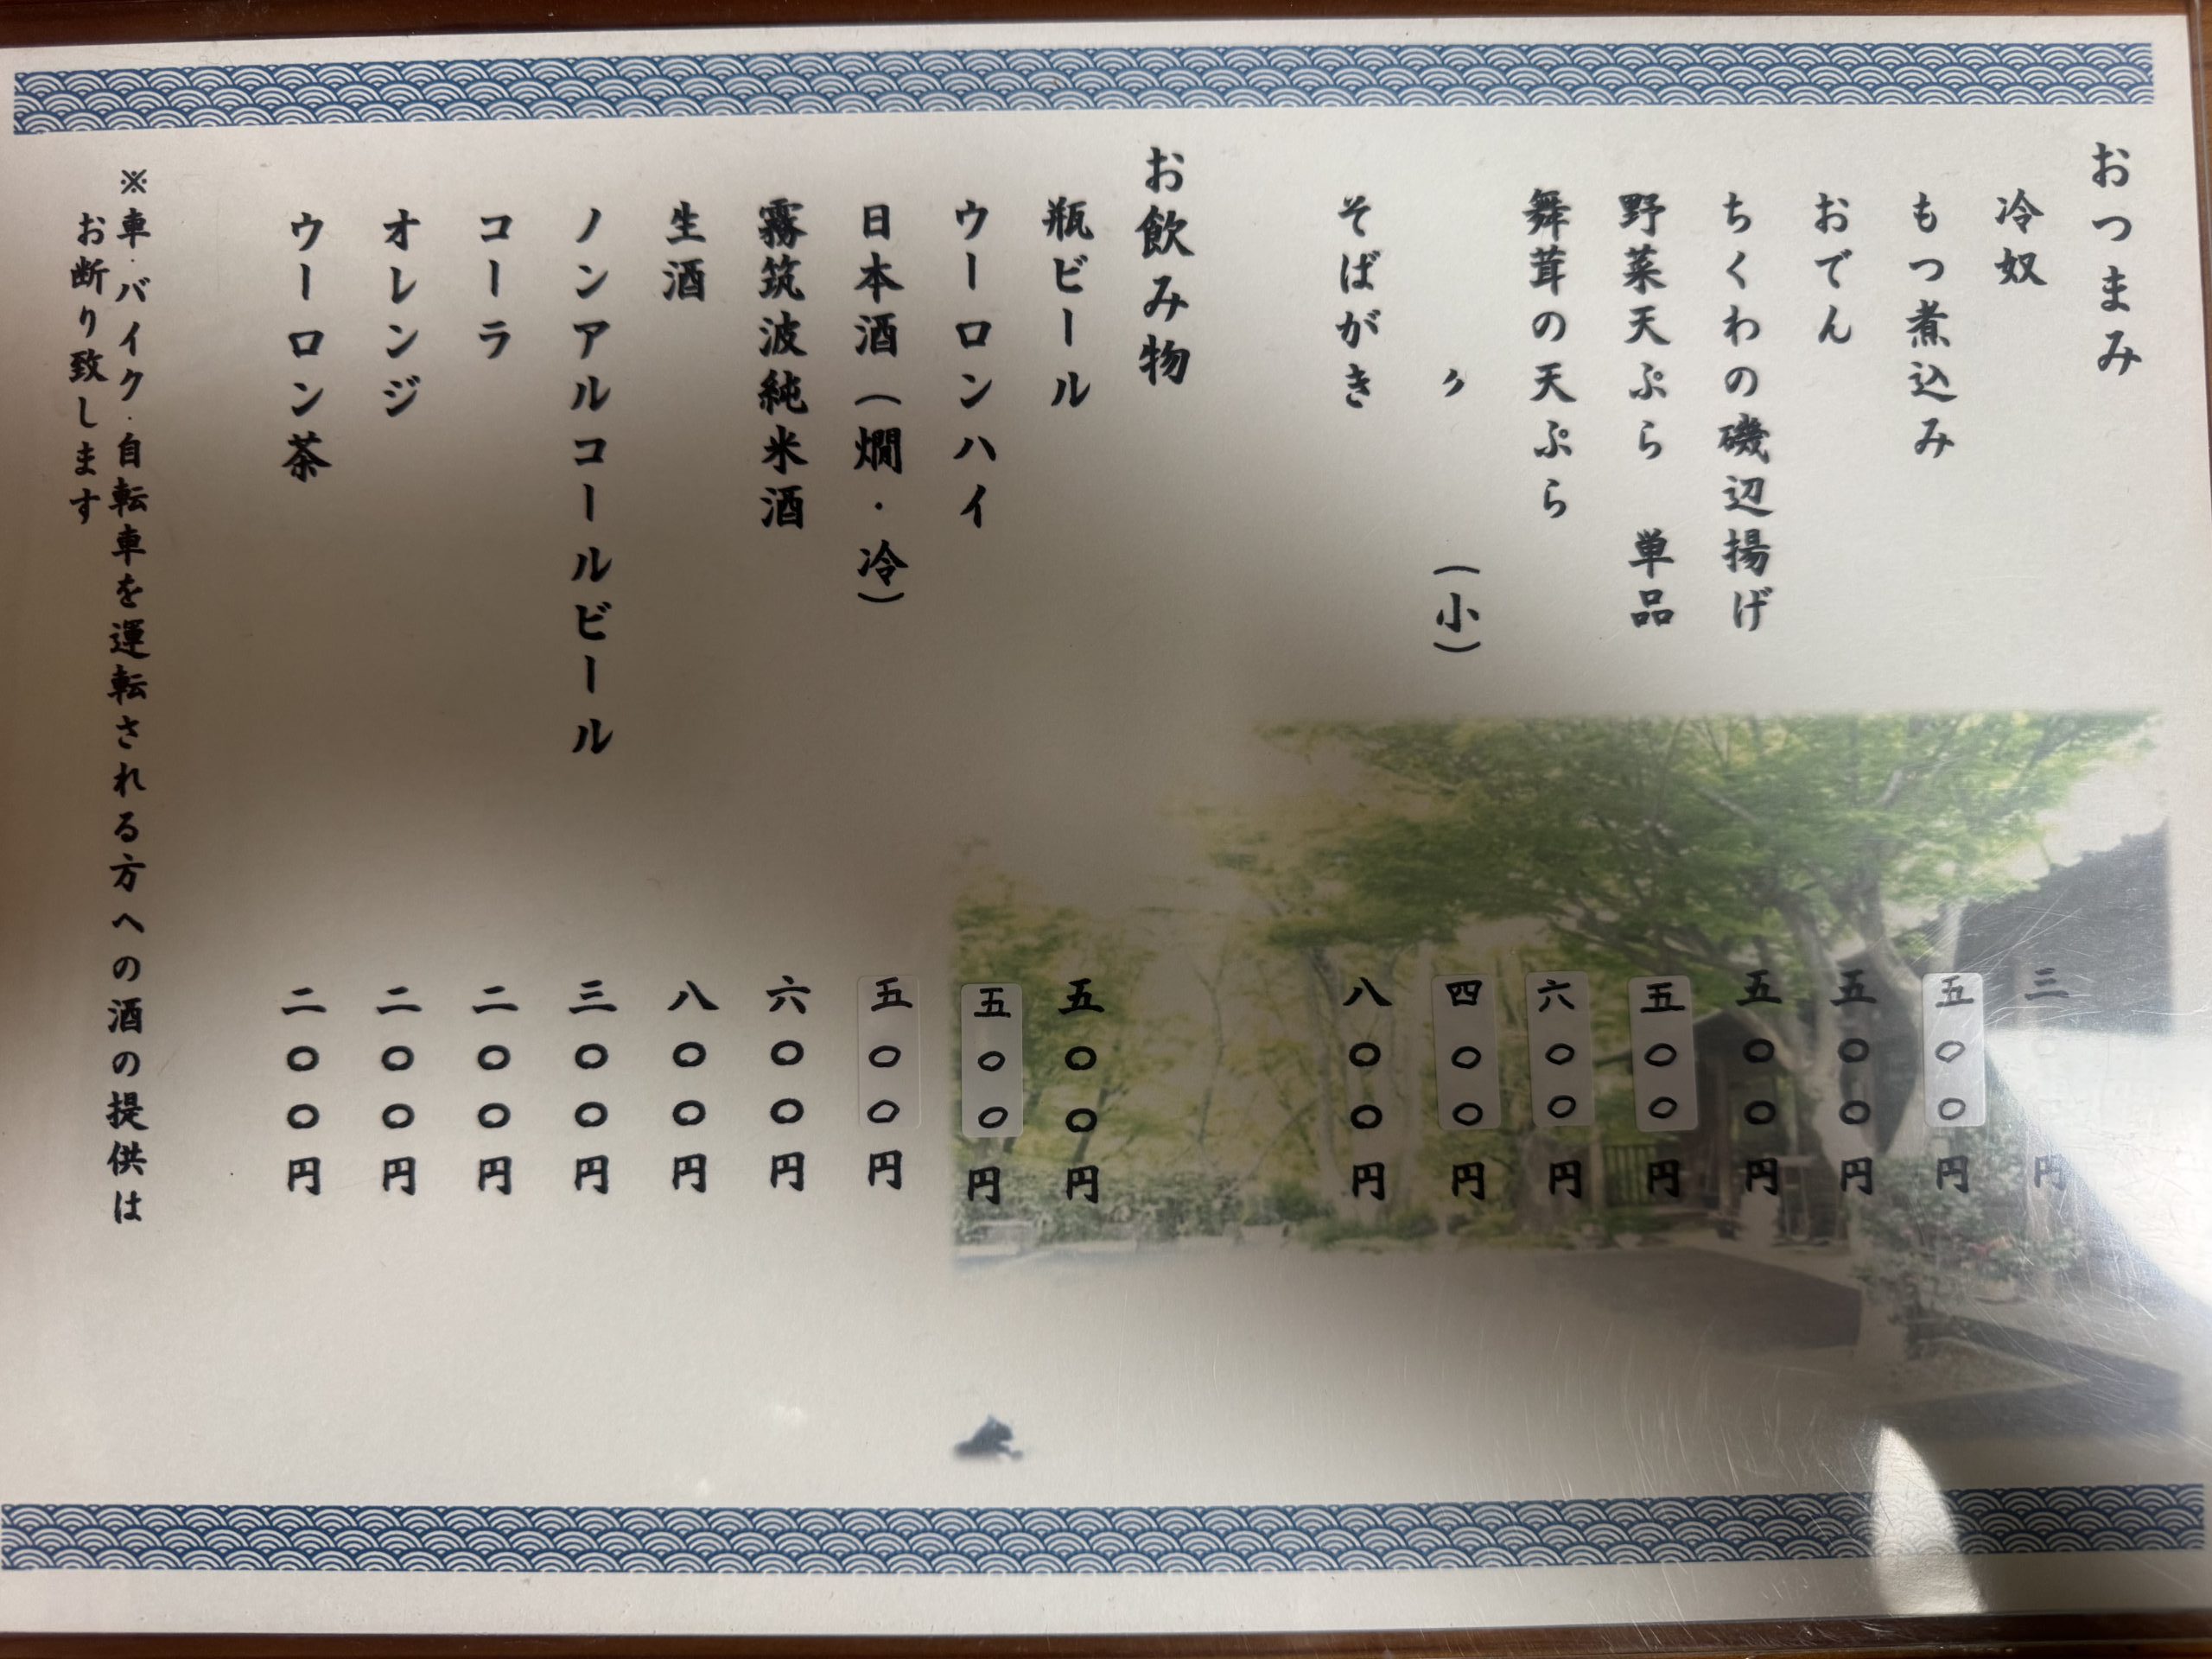 おつまみ
冷奴 三〇〇円
もつ煮込み 五〇〇円
おでん 五〇〇円
ちくわの磯辺揚げ 五〇〇円
野菜天ぷら 単品 五〇〇円
舞茸の天ぷら 六〇〇円
〃 (小) 四〇〇円
そばがき 八〇〇円
お飲み物
瓶ビール 五〇〇円
ウーロンハイ 五〇〇円
日本酒(燗・冷) 五〇〇円
霧筑波純米酒 六〇〇円
生酒 八〇〇円
ノンアルコールビール 三〇〇円
コーラ 二〇〇円
オレンジ 二〇〇円
ウーロン茶 二〇〇円
※車・バイク・自転車を運転される方への酒の提供は
お断り致します